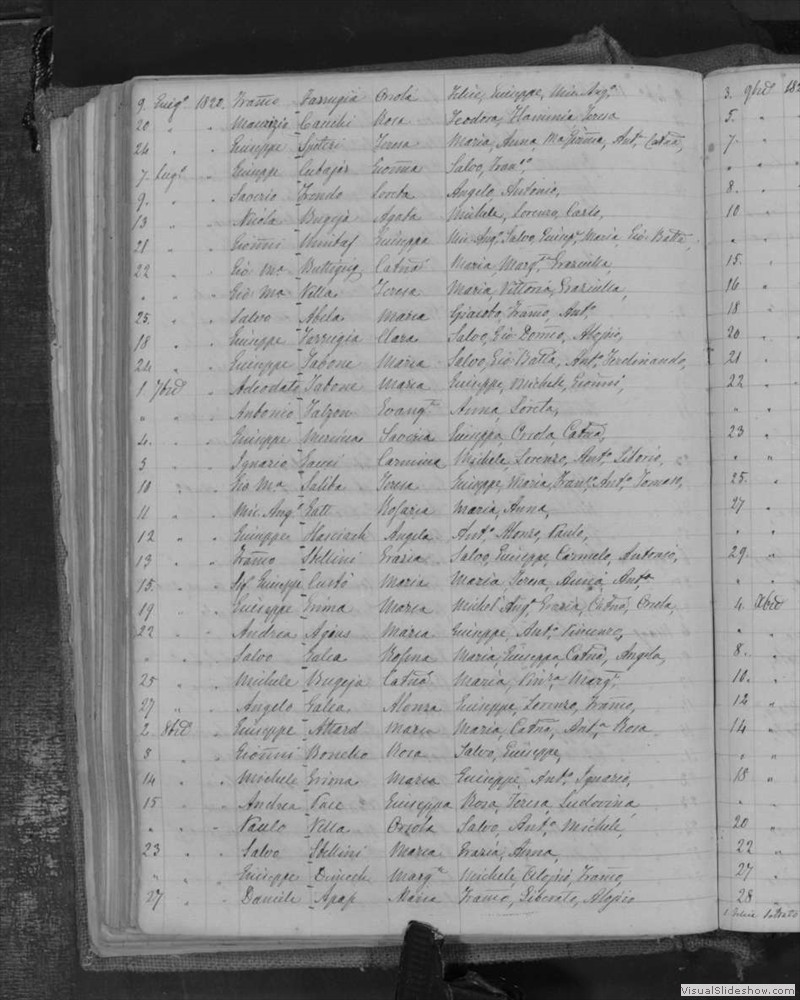 9 Giug.o 1822. Franco Farrugia Orsola Felice, Giuseppe, Mic. Ang.o
20 " " Maurizio Cauchi Rosa Teodora, Flaminia, Teresa
24 " " Giuseppe Spiteri Teresa Maria, Anna, Ant.a Catna,
7 Lug.o " Giuseppe Cutajar Gionna Salvo, Fran.co,
9. " " Saverio Zondo Loreta Angelo, Antonio,
13 " " Nicola Bugeja Agata Michele, Lorenzo, Carlo,
21 " " Gionni Giuseppa Mic. Ang.o Salvo, Giusep.e Maria, Gio Batta,
22 " " Gio Ma Buttigieg Catna Maria, Marg.ta Graziulla,
" " " Gio Ma Vella Teresa Maria, Vittoria, Graziulla,
25. " " Salvo Abela Maria Franco, Ant.o
18 " " Giuseppe Farrugia Clara Salvo, Gio Domco, Alojsio,
24 " " Giuseppe Tabone Maria Salvo, Gio Batta, Ant.o Ferdinando,
1. 7bre " Adeodato Tabone Maria Giuseppe, Michele, Gionni,
" " " Antonio Falzon Evang.ta Anna, Loreta,
4. " " Giuseppe Saveria Giuseppa, Orsola, Catna,
5 " " Ignazio Gauci Carmina Michele, Lorenzo, Ant.o Liborio,
10 " " Gio Ma Saliba Teresa Giuseppe, Maria, Fran.co Ant.o Tomaso,
11 " " Mic. Ang.o Gatt Rosaria Maria, Anna,
12 " " Giuseppe Angela Ant.o Alonzo, Paulo,
13 " " Franco Stellini Grazia Salvo, Giuseppe, Carmelo, Antonio,
15. " " Giuseppe Curto Maria Maria, Teresa, Anna, Ant.a
19 " " Giuseppe Grima Maria Michel' Ang.o Grazia, Catna, Orsola,
22 " " Andrea Agius Maria Giuseppe, Ant.o Vincenzo,
" " " Salvo Galea Rosina Maria, Giuseppa, Catna, Angela,
25 " " Michele Bugeja Catna Maria, Vinz.a Marg.ta
27 " " Angelo Galea Alonza Giuseppe, Lorenzo, Franco,
2. 8bre " Giuseppe Attard Maria Maria, Catna, Ant.a Rosa
5 " " Gionni Bonello Rosa Salvo, Giuseppe,
14 " " Michele Grima Maria Giuseppe, Ant.o Ignazio,
15 " " Andrea Pace Giuseppa Rosa, Teresa, Ludovina
" " " Paulo Vella Orsola Salvo, Ant.o Michele,
23 " " Salvo Stellini Maria Grazia, Anna,
" " " Giuseppe Dimech Marg.ta Michele, Alojsio, Franco,
27 " " Daniele Apap Maria Franco, Liberato, Alojsio
3. 9bre 182
5. "
7. "
" "
8. "
10 "
" "
15. "
16 "
18 "
20 "
21 "
22 "
" "
23 "
" "
25. "
27 "
" "
29. "
" "
4. Xbre
" "
8. "
10. "
12 "
14 "
" "
18 "
" "
20 "
22 "
27 "
28
VisualSlideshow.com